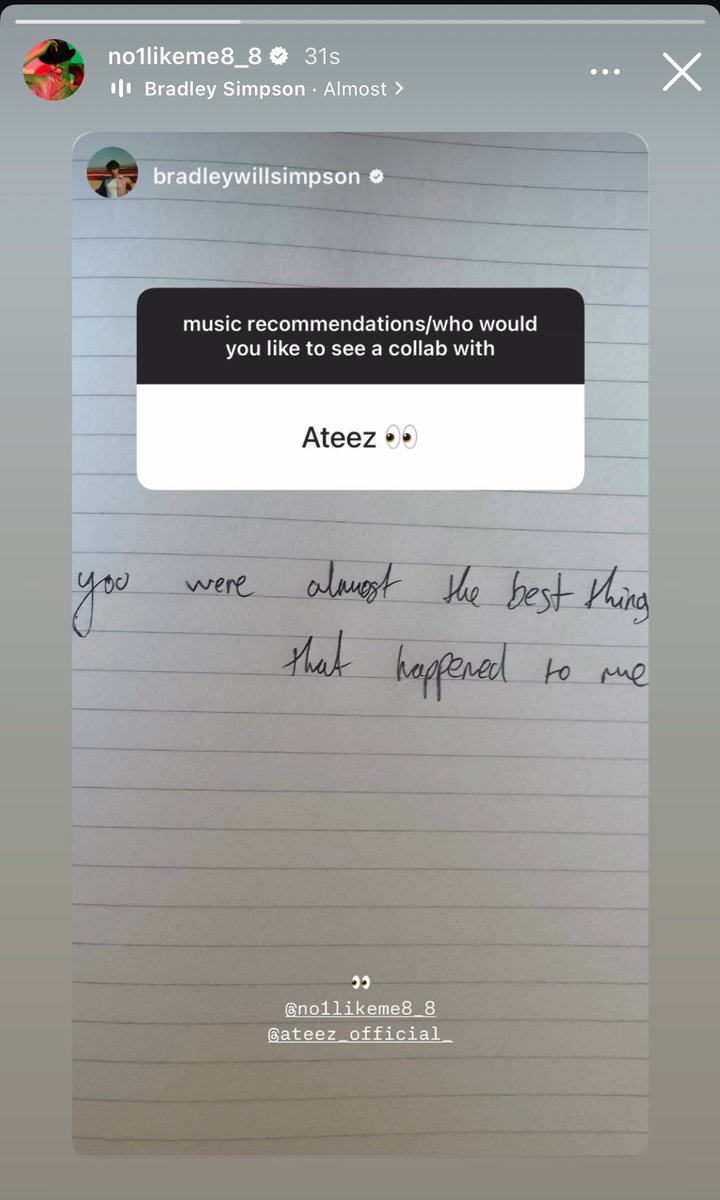 no1likeme8_8 31s
Bradley Simpson · Almost >
bradleywillsimpson
music recommendations/who would
you like to see a collab with
Ateez 👀
you were almost the best thing
that happened to me
👀
@no1likeme8_8
@ateez_official_